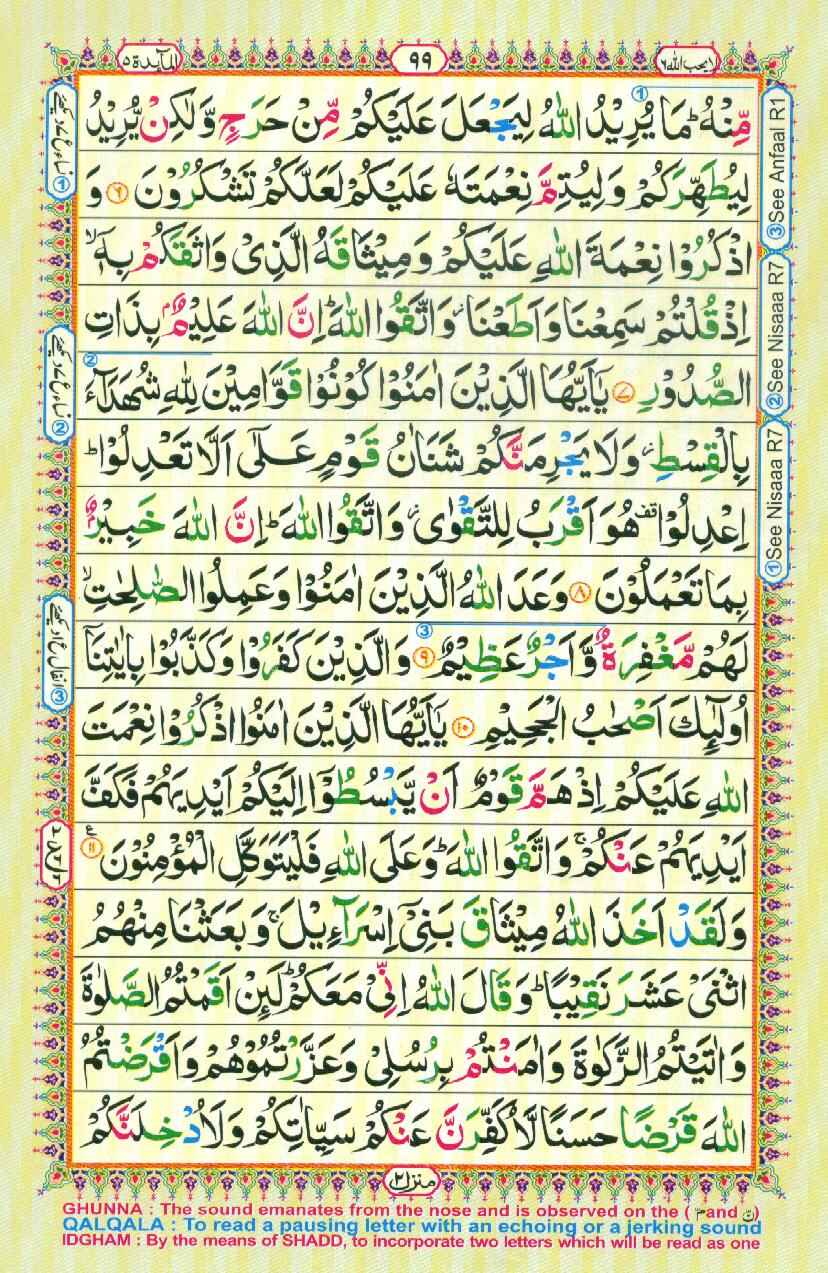 المآىدة ٥
٩٩
لا يحب الله ٦
مِّنْهُ ؕ مَا يُرِيْدُ اللّٰهُ لِيَجْعَلَ عَلَيْكُمْ مِّنْ حَرَجٍ وَّلٰكِنْ يُّرِيْدُ
لِيُطَهِّرَكُمْ وَلِيُتِمَّ نِعْمَتَهٗ عَلَيْكُمْ لَعَلَّكُمْ تَشْكُرُوْنَ ۶ وَ
اذْكُرُوْا نِعْمَةَ اللّٰهِ عَلَيْكُمْ وَمِيْثَاقَهُ الَّذِىْ وَاثَقَكُمْ بِهٖۤ ۙ
اِذْ قُلْتُمْ سَمِعْنَا وَاَطَعْنَا ؗ وَاتَّقُوا اللّٰهَ ؕ اِنَّ اللّٰهَ عَلِيْمٌۢ بِذَاتِ
الصُّدُوْرِ ۷ يٰۤاَيُّهَا الَّذِيْنَ اٰمَنُوْا كُوْنُوْا قَوَّامِيْنَ لِلّٰهِ شُهَدَآءَ
بِالْقِسْطِ ؗ وَلَا يَجْرِمَنَّكُمْ شَنَاٰنُ قَوْمٍ عَلٰٓى اَلَّا تَعْدِلُوْا ؕ
اِعْدِلُوْا قف هُوَ اَقْرَبُ لِلتَّقْوٰى ؗ وَاتَّقُوا اللّٰهَ ؕ اِنَّ اللّٰهَ خَبِيْرٌۢ
بِمَا تَعْمَلُوْنَ ۸ وَعَدَ اللّٰهُ الَّذِيْنَ اٰمَنُوْا وَعَمِلُوا الصّٰلِحٰتِ ۙ
لَهُمْ مَّغْفِرَةٌ وَّاَجْرٌ عَظِيْمٌ ۹ وَالَّذِيْنَ كَفَرُوْا وَكَذَّبُوْا بِاٰيٰتِنَاۤ
اُولٰٓئِكَ اَصْحٰبُ الْجَحِيْمِ ۱۰ يٰۤاَيُّهَا الَّذِيْنَ اٰمَنُوا اذْكُرُوْا نِعْمَتَ
اللّٰهِ عَلَيْكُمْ اِذْ هَمَّ قَوْمٌ اَنْ يَّبْسُطُوْۤا اِلَيْكُمْ اَيْدِيَهُمْ فَكَفَّ
اَيْدِيَهُمْ عَنْكُمْ ۚ وَاتَّقُوا اللّٰهَ ؕ وَعَلَى اللّٰهِ فَلْيَتَوَكَّلِ الْمُؤْمِنُوْنَ ۱۱ ع
وَلَقَدْ اَخَذَ اللّٰهُ مِيْثَاقَ بَنِىْۤ اِسْرَآءِيْلَ ۚ وَبَعَثْنَا مِنْهُمُ
اثْنَىْ عَشَرَ نَقِيْبًا ؕ وَقَالَ اللّٰهُ اِنِّىْ مَعَكُمْ ؕ لَئِنْ اَقَمْتُمُ الصَّلٰوةَ
وَاٰتَيْتُمُ الزَّكٰوةَ وَاٰمَنْتُمْ بِرُسُلِىْ وَعَزَّرْتُمُوْهُمْ وَاَقْرَضْتُمُ
اللّٰهَ قَرْضًا حَسَنًا لَّاُكَفِّرَنَّ عَنْكُمْ سَيِّاٰتِكُمْ وَلَاُدْخِلَنَّكُمْ
منزل ٢
③See Anfaal R1
②See Nisaaa R7
①See Nisaaa R7
GHUNNA : The sound emanates from the nose and is observed on the ( مّ and نّ )
QALQALA : To read a pausing letter with an echoing or a jerking sound
IDGHAM : By the means of SHADD, to incorporate two letters which will be read as one